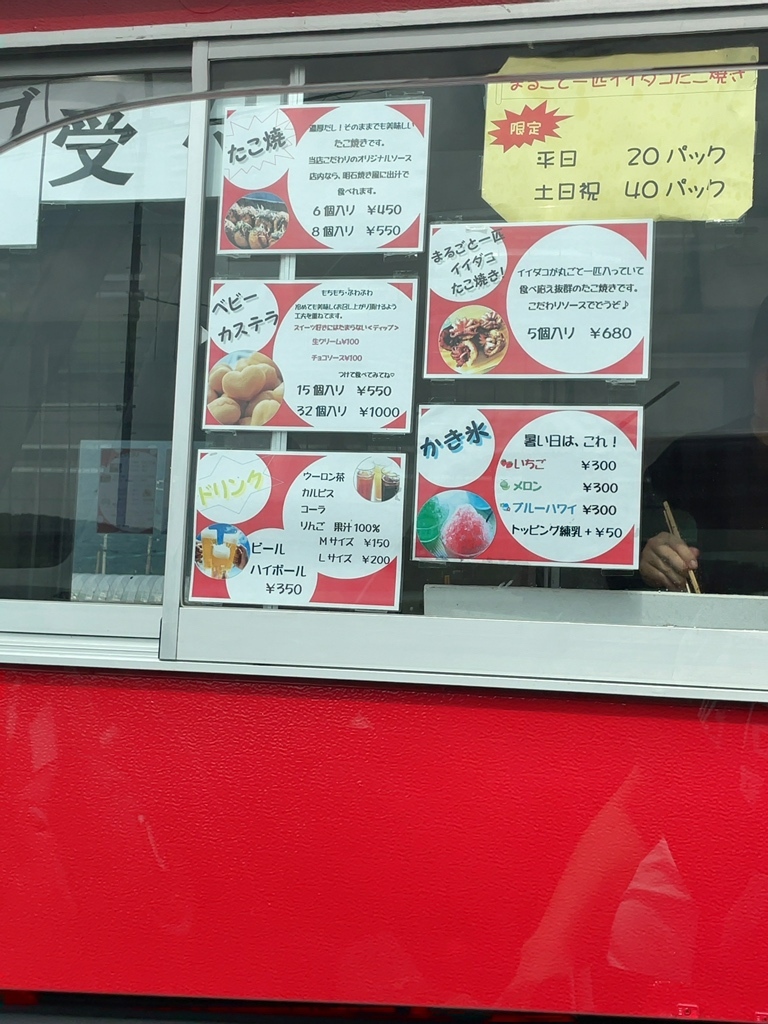 受
まるごと一匹イイダコたこ焼き
限定
平日 20パック
土日祝 40パック
たこ焼
濃厚だし！そのままでも美味しい
たこ焼きです。
当店こだわりのオリジナルソース
店内なら、明石焼き風に出汁で
食べれます。
6個入り ¥450
8個入り ¥550
まるごと一匹
イイダコ
たこ焼き！
イイダコが丸ごと一匹入っていて
食べ応え抜群のたこ焼きです。
こだわりソースでどうぞ♪
5個入り ¥680
ベビー
カステラ
もちもち・ふわふわ
冷めても美味しくお召し上がり頂けるよう
工夫を重ねてます。
スイーツ好きにはたまらない＜ディップ＞
生クリーム¥100
チョコソース¥100
つけて食べてみてね♡
15個入り ¥550
32個入り ¥1000
かき氷
暑い日は、これ！
いちご ¥300
メロン ¥300
ブルーハワイ ¥300
トッピング練乳＋¥50
ドリンク
ウーロン茶
カルピス
コーラ
りんご 果汁100%
Mサイズ ¥150
Lサイズ ¥200
ビール
ハイボール
¥350